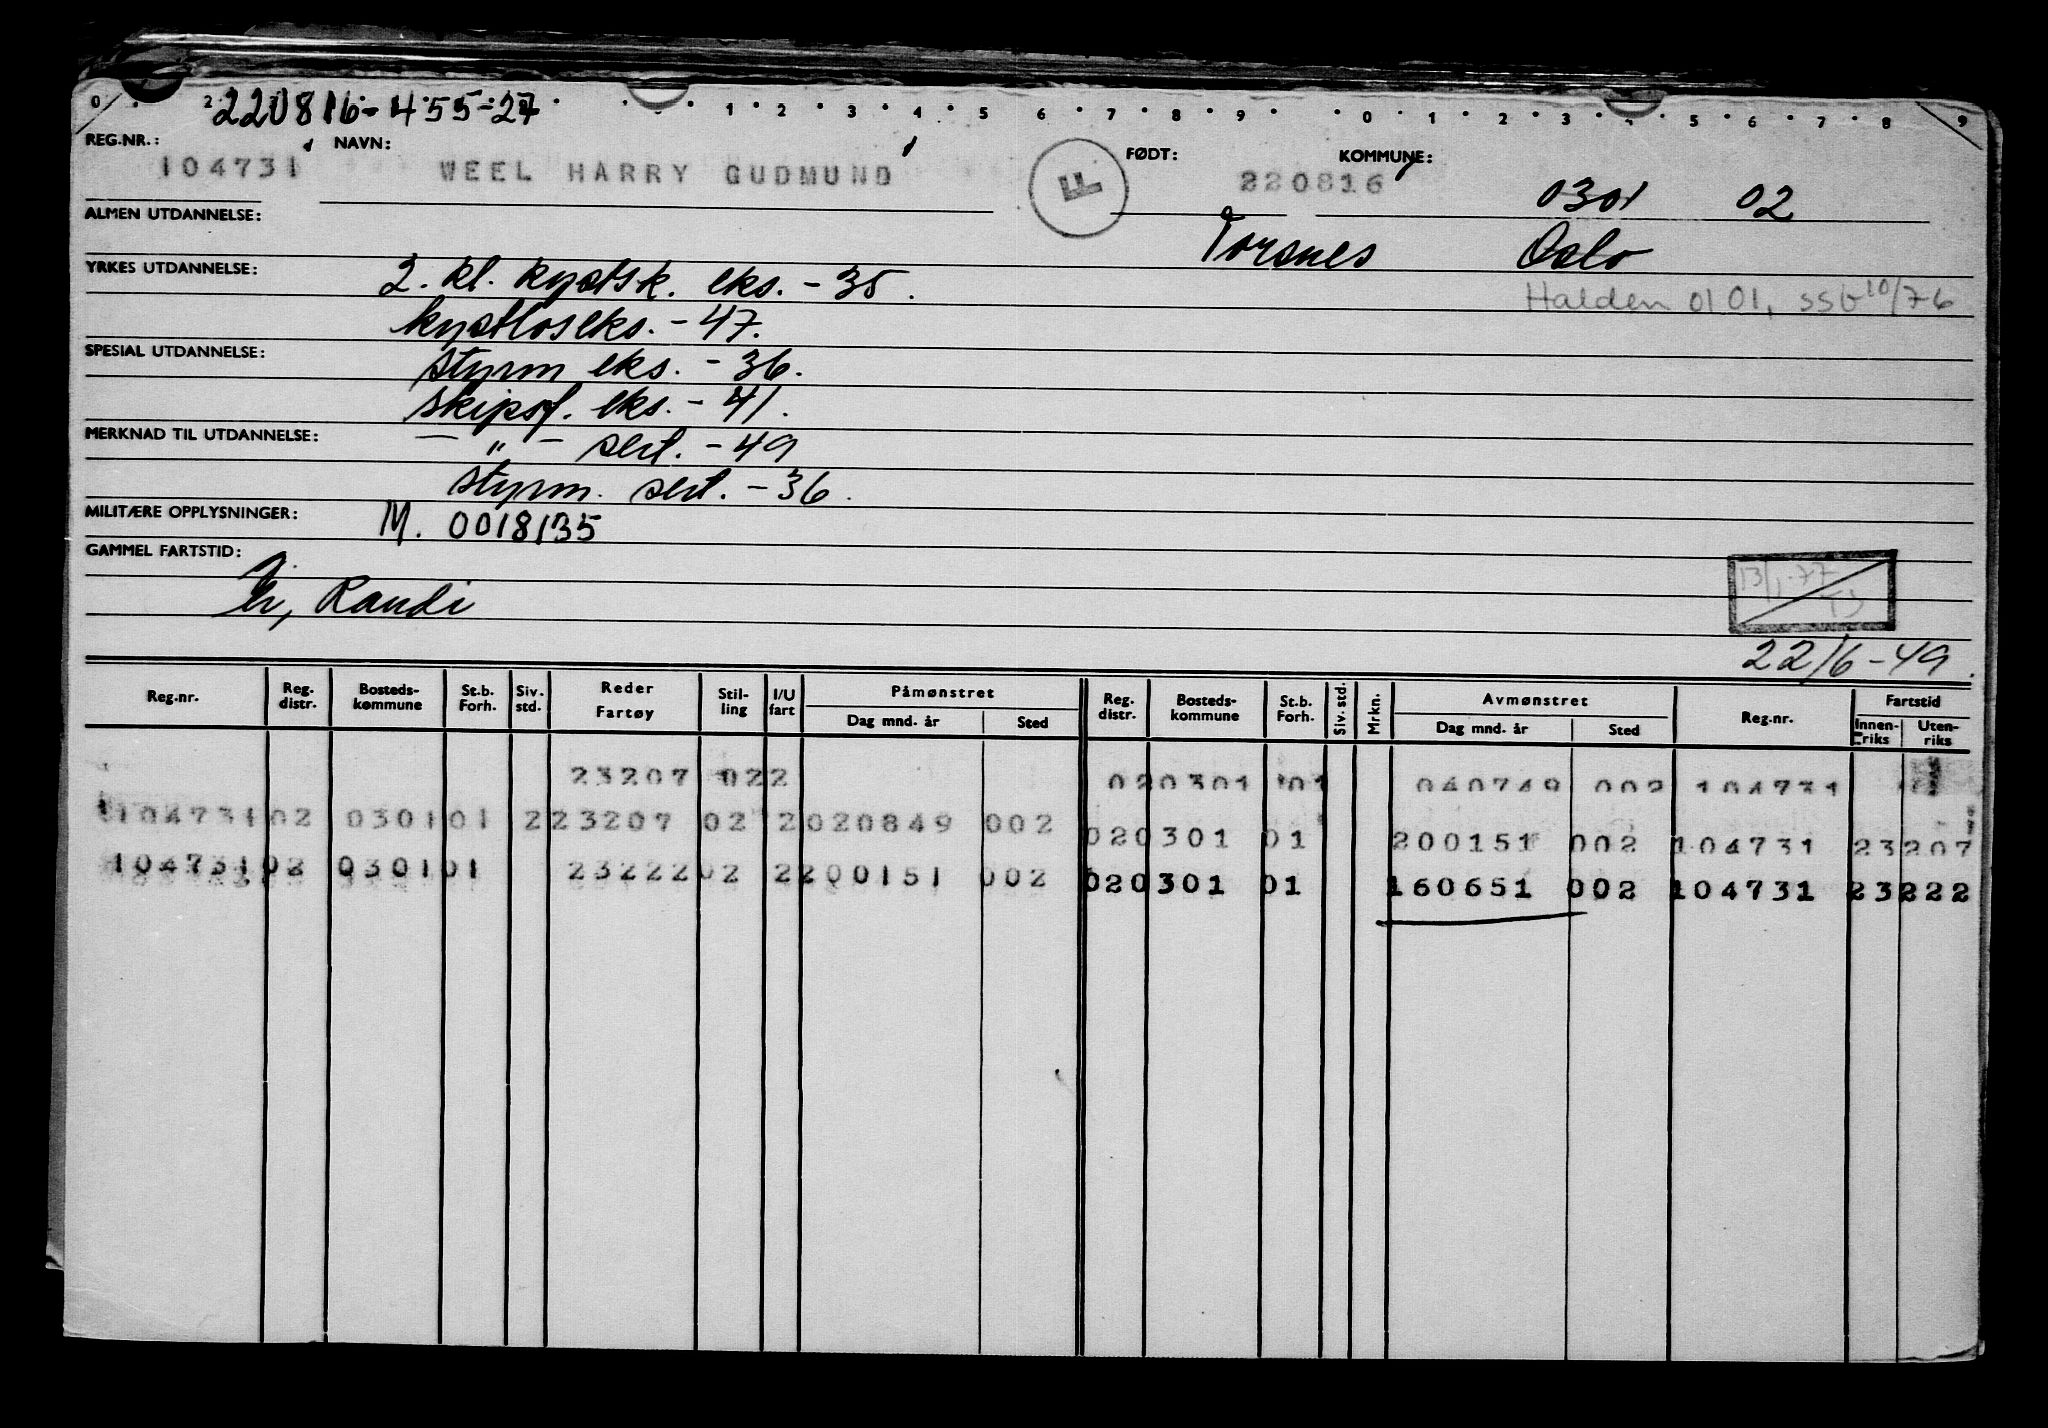 220816-455-27
REG.NR.: NAVN: FØDT: KOMMUNE:
104731 WEEL HARRY GUDMUND F 220816 0301 02
ALMEN UTDANNELSE: Torsnes Oslo
YRKES UTDANNELSE: 2. kl. kystsk. eks. - 35.
Halden 0101, SSB 10/76
kystloseks. - 47.
SPESIAL UTDANNELSE: styrm eks. - 36.
skipsf. eks. - 41.
MERKNAD TIL UTDANNELSE: — " — sert. - 49
styrm. sert. - 36.
MILITÆRE OPPLYSNINGER: M. 0018135
GAMMEL FARTSTID:
13/1-77
Randi
22/6-49.
Reg.nr. Reg. distr. Bosteds-kommune St.b. Forh. Siv. std. Reder Fartøy Stil-ling I/U fart Påmønstret Dag mnd. år Sted Reg. distr. Bosteds-kommune St.b. Forh. Siv. std. Mrkn. Avmønstret Dag mnd. år Sted Reg.nr. Fartstid Innen-riks Uten-riks
23207 022 020301 01 040749 002 104731
104731 02 0301 01 2 23207 02 2 020849 002 020301 01 200151 002 104731 23207
104731 02 0301 01 23222 02 2 200151 002 020301 01 160651 002 104731 23222